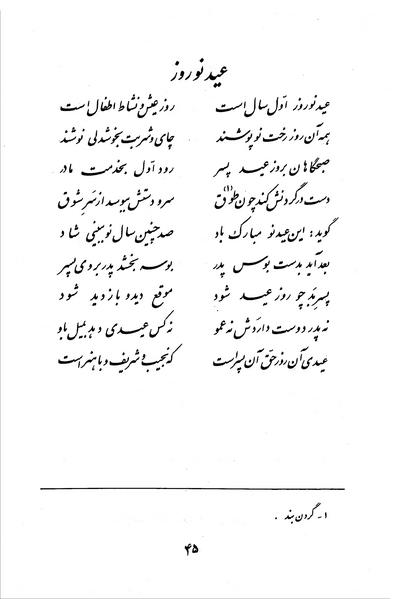 عید نوروز
عید نوروز اوّل سال است روز عیش و نشاط اطفال است
همه آن روز رخت نو پوشند چای و شربت بخوشدلی نوشند
صبحگاهان بروز عید پسر رود اوّل بخدمت مادر
دست در گردنش کند چون طوق(۱) سر و دستش ببوسد از سر شوق
گوید: این عید نو مبارک باد صد چنین سال نو ببینی شاد
بعد آید بدست بوس پدر بوسه بخشد پدر بروی پسر
پسر بد چو روز عید شود موقع دید و بازدید شود
نه پدر دوست داردش نه عمو نه کس عیدی دهد بمیل باو
عیدی آن روز حقّ آن پسر است که نجیب و شریف و با هنر است
۱- گردن بند .
۴۵